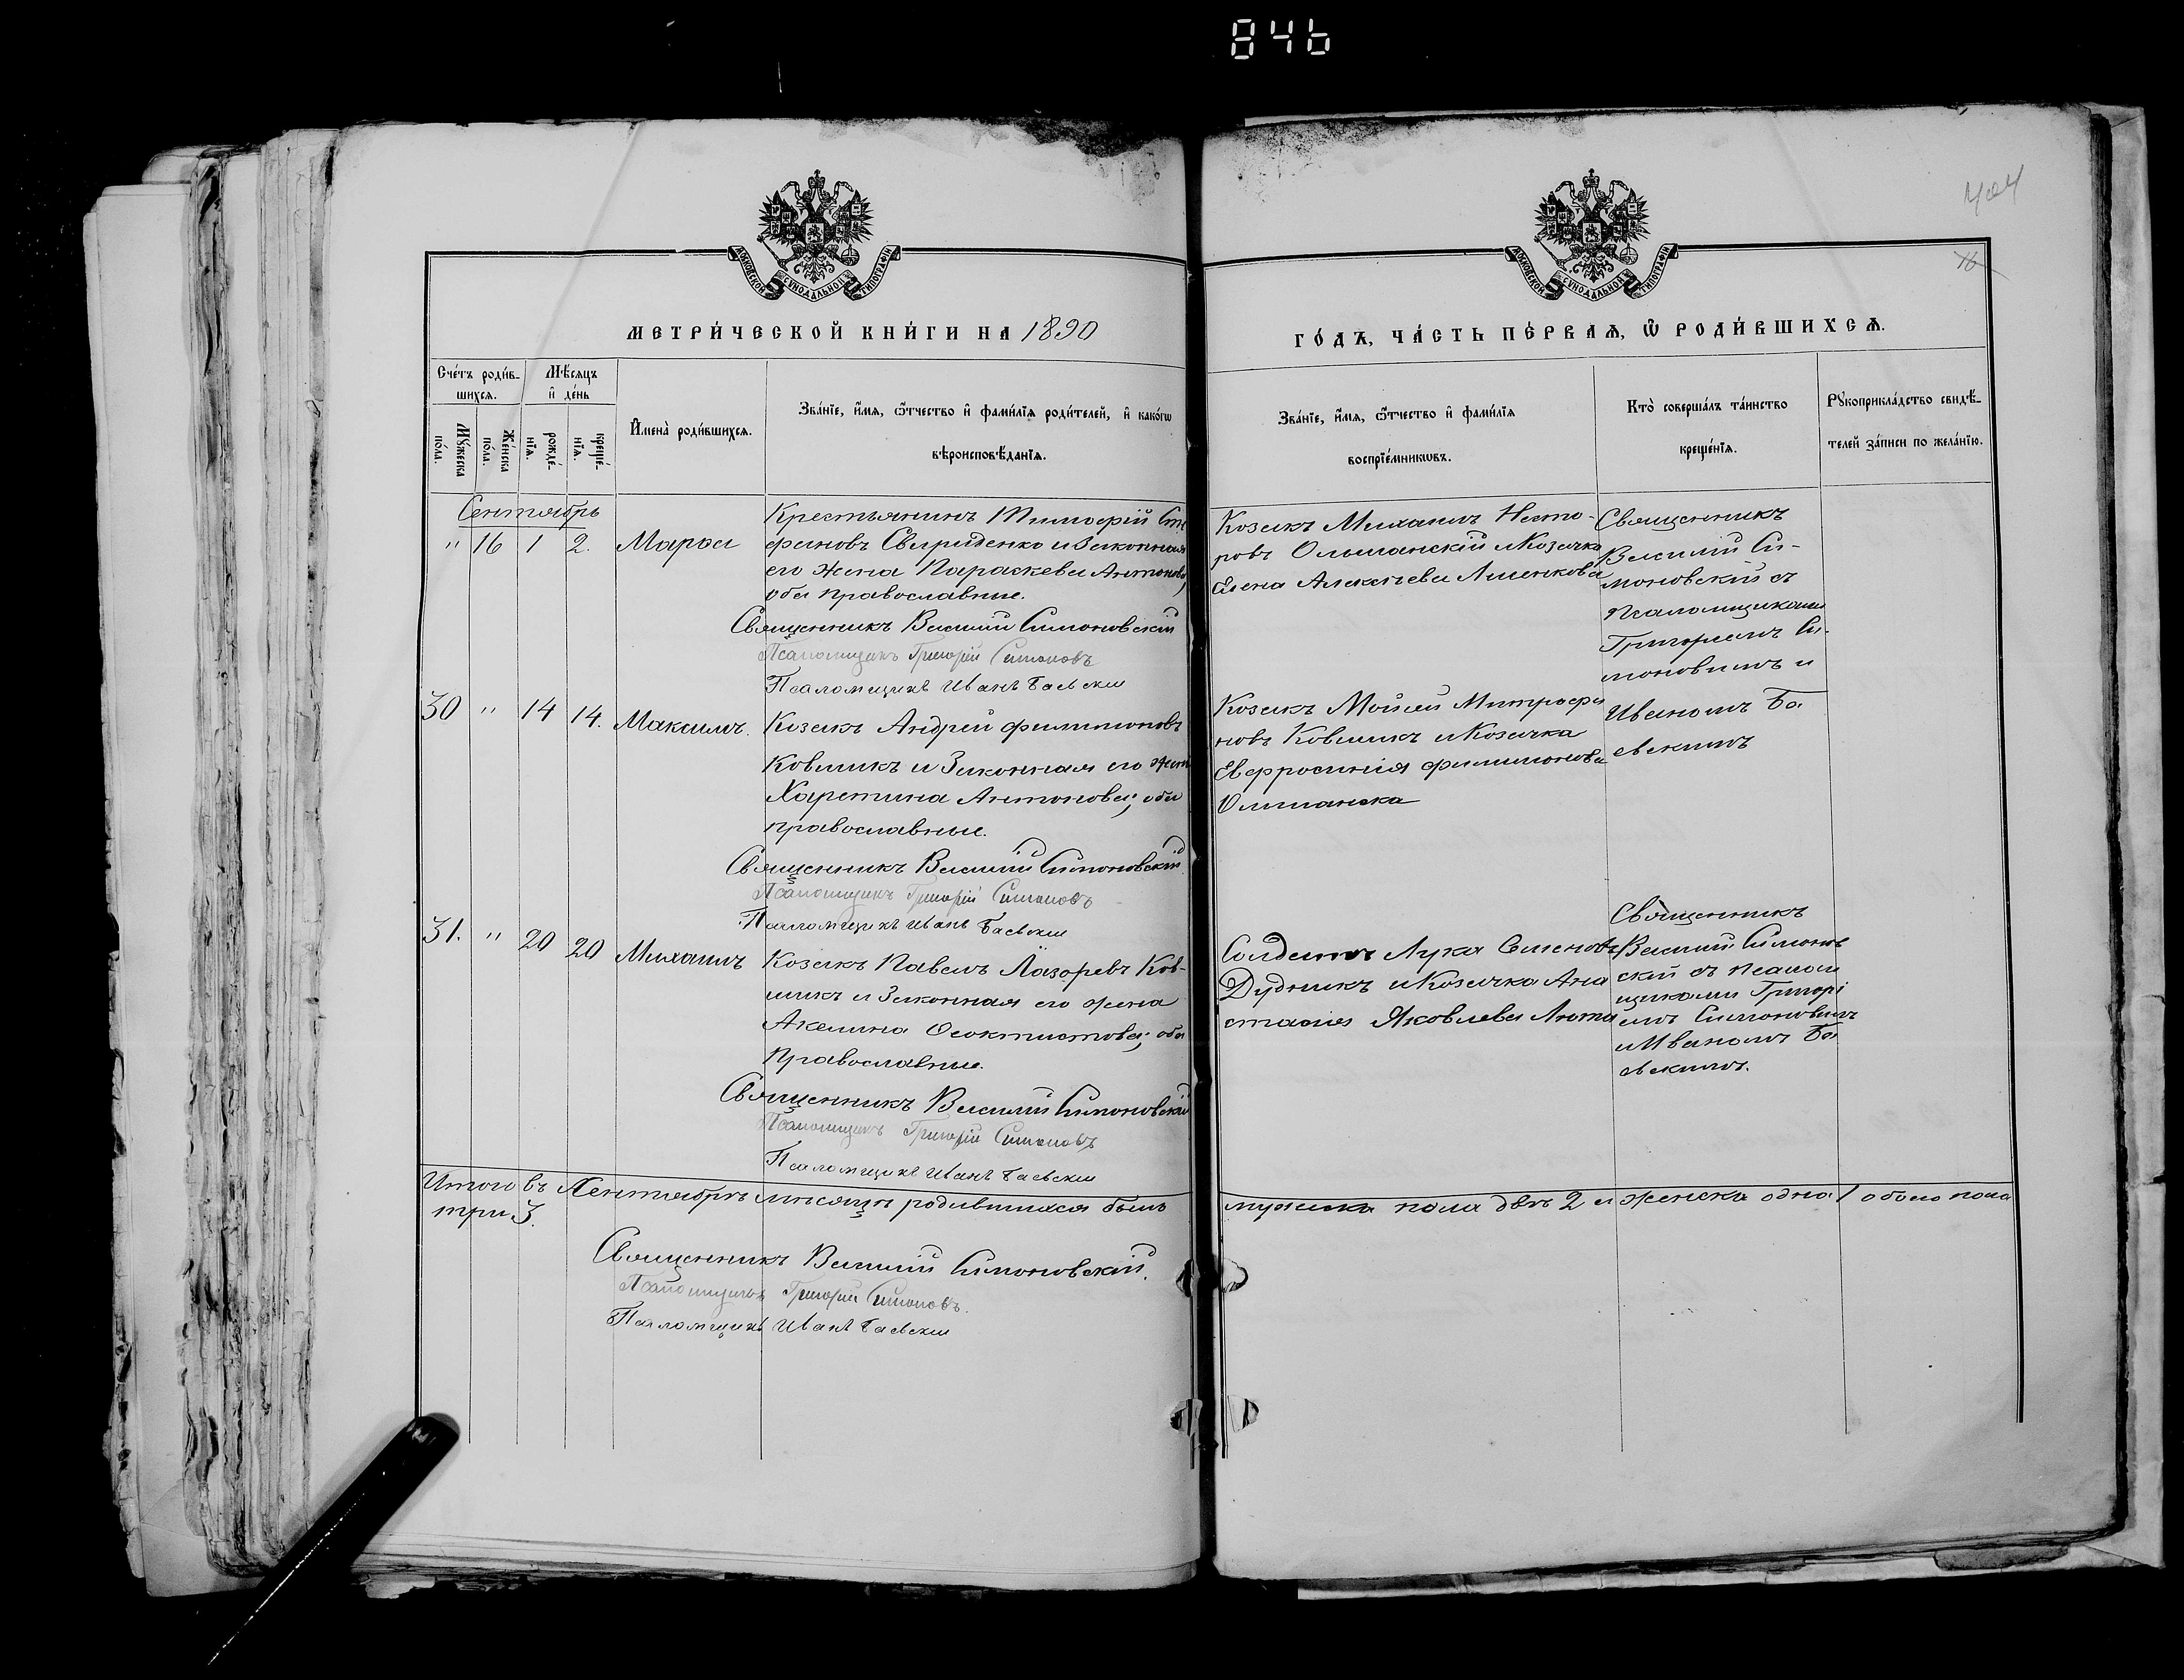 846
404
16
МОСКОВСКОЙ СУНОДАЛЬНОЙ ТИПОГРАФІИ
МОСКОВСКОЙ СУНОДАЛЬНОЙ ТИПОГРАФІИ
МЕТРИ́ЧЕСКОЙ КНИ́ГИ НА 1890
ГО́ДЪ, ЧА́СТЬ ПЕ́РВАѦ, Ѿ РОДИ́ВШИХСѦ.
Сче́тъ роди́в-
шихсѧ.
Мѣ́сяцъ
и҆ де́нь
Мꙋ́жеска
по́ла.
Же́нска
по́ла.
рожде́-
нїѧ.
креще́-
нїѧ.
И҆мена̀ роди́вшихсѧ.
Зва́нїе, и҆́мѧ, ѻ҆́тчество и҆ фами́лїѧ роди́телей, и҆ како́гѡ
вѣроисповѣ́данїѧ.
Зва́нїе, и҆́мѧ, ѻ҆́тчество и҆ фами́лїѧ
воспрїе́мникѡвъ.
Кто̀ соверша́лъ та́инство
креще́нїѧ.
Рꙋкоприкла́дство свидѣ́-
телей за́писи по жела́нїю.
Сентябрь
" 16 1 2. Марѳа
Крестьянинъ Тимофій Сте
фановъ Свириденко и Законная
его жена Параскева Антонова,
оба православные.
Священникъ Василій Симоновскій
Псаломщикъ Григорій Симоновъ
Псаломщикъ Иванъ Баевскій
Козакъ Михаилъ Несто-
ровъ Ольшанскій и Козачка
Елена Алексѣева
Священникъ
Василій Си-
моновскій съ
Псаломщиками
Григоріемъ Си-
моновымъ и
Иваномъ Ба
евскимъ
30 " 14 14. Максимъ.
Козакъ Андрей Филимоновъ
Ковшикъ и Законная его жена
Харетина Антонова; оба
православные.
Священникъ Василій Симоновскій
Псаломщикъ Григорій Симоновъ
Псаломщикъ Иванъ Баевскій
Козакъ Мойсей Митрофа
новъ Ковшикъ и Козачка
Евфросинія Филимонова
Олшанска
31. " 20 20 Михаилъ
Козакъ Павелъ Лазоревъ Ков-
шикъ и Законная его жена
Акелина Ѳеоктистова; оба
Православные.
Священникъ Василій Симоновскій
Псаломщикъ Григорій Симоновъ
Псаломщикъ Иванъ Баевскій
Солдатъ Лука Семеновъ
Дудникъ и Козачка Ана
стасія Яковлева Люта
Священникъ
Василій Симонов
скій съ псалом
щиками Григорі
емъ Симоновымъ
и Иваномъ Ба
евскимъ.
Итого въ Сентябрѣ мѣсяцѣ родившихся было
мужеска пола два 2 и женска одна 1 обоего пола
три 3.
Священникъ Василій Симоновскій.
Псаломщикъ Григорій Симоновъ.
Псаломщикъ Иванъ Баевскій